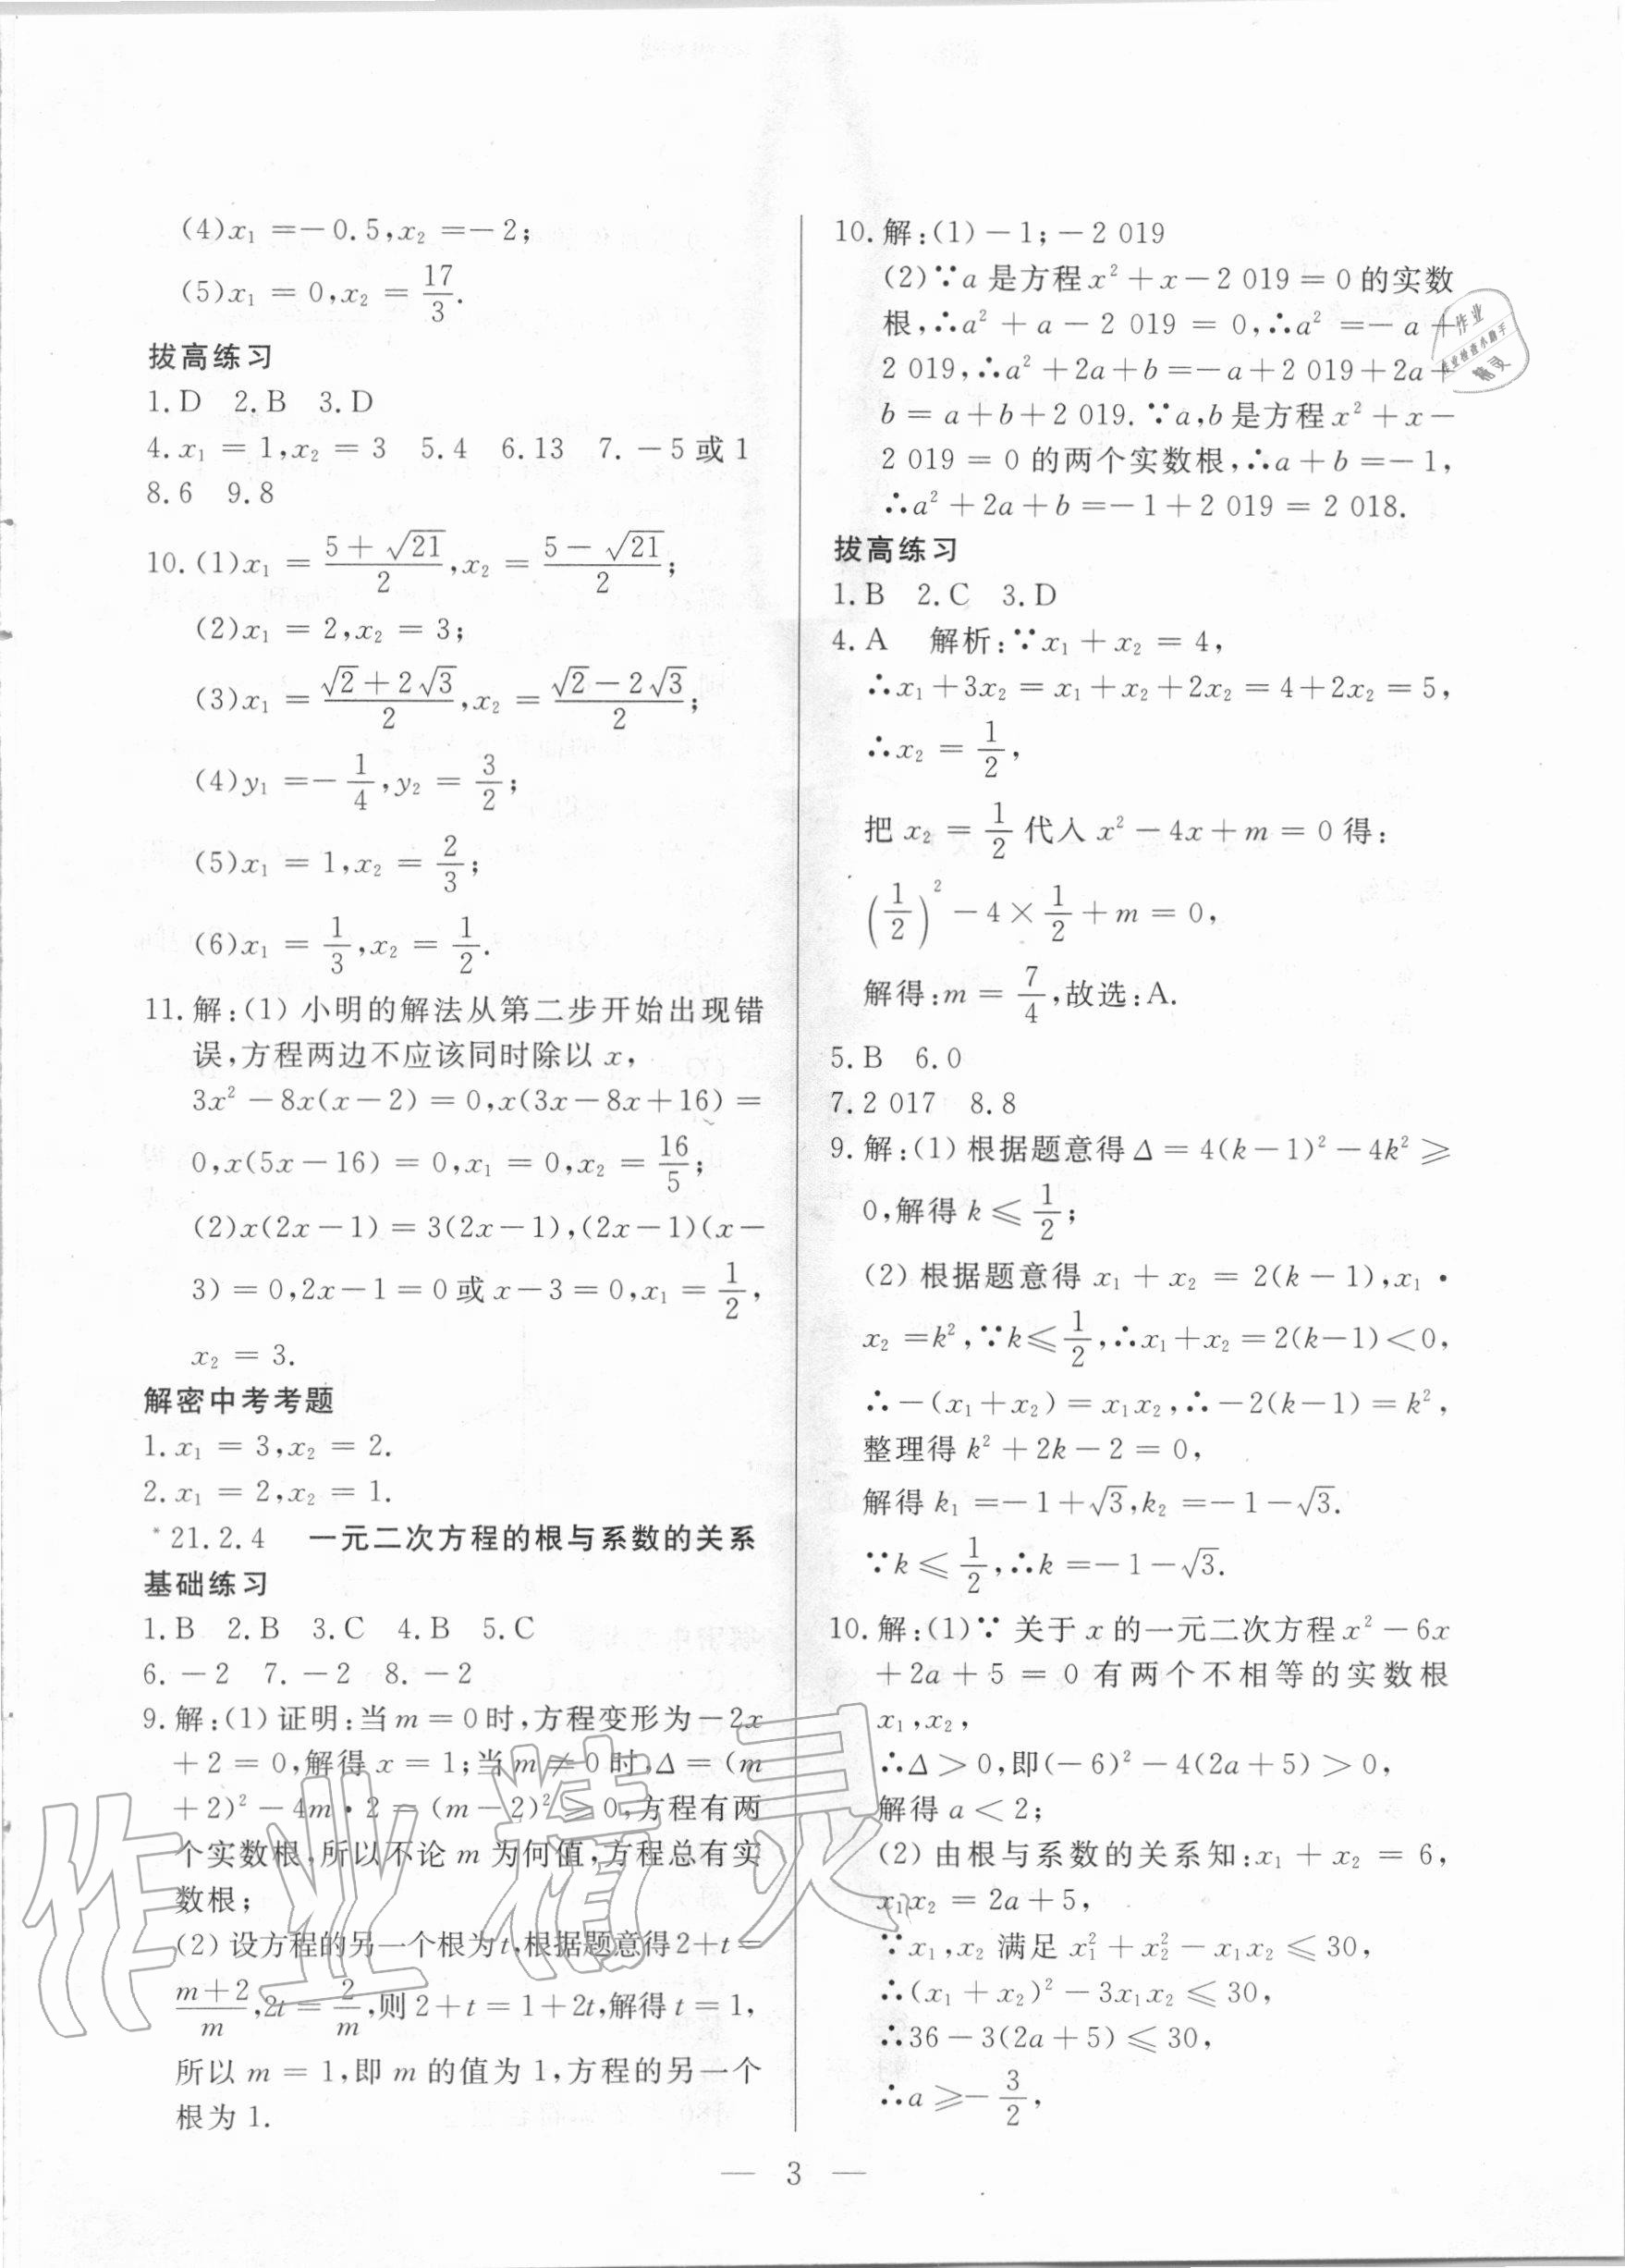 (4)x₁ =－0.5,x₂ =－2;
(5)x₁ = 0,x₂ = 17/3.
拔高练习
1.D 2.B 3.D
4.x₁ = 1,x₂ = 3 5.4 6.13 7.－5或1
8.6 9.8
10.(1)x₁ = (5+√21)/2,x₂ = (5－√21)/2;
(2)x₁ = 2,x₂ = 3;
(3)x₁ = (√2+2√3)/2,x₂ = (√2－2√3)/2;
(4)y₁ =－1/4,y₂ = 3/2;
(5)x₁ = 1,x₂ = 2/3;
(6)x₁ = 1/3,x₂ = 1/2.
11.解:(1)小明的解法从第二步开始出现错
误,方程两边不应该同时除以x,
3x²－8x(x－2)=0,x(3x－8x+16)=
0,x(5x－16)=0,x₁=0,x₂=16/5;
(2)x(2x－1)=3(2x－1),(2x－1)(x－
3)=0,2x－1=0或x－3=0,x₁=1/2,
x₂ = 3.
解密中考考题
1.x₁ = 3,x₂ = 2.
2.x₁ = 2,x₂ = 1.
*21.2.4 一元二次方程的根与系数的关系
基础练习
1.B 2.B 3.C 4.B 5.C
6.－2 7.－2 8.－2
9.解:(1)证明:当m=0时,方程变形为－2x
+2=0,解得x=1;当m≠0时,Δ=(m
+2)²－4m·2=(m－2)²≥0,方程有两
个实数根,所以不论m为何值,方程总有实
数根;
(2)设方程的另一个根为t,根据题意得2+t=
(m+2)/m,2t=2/m,则2+t=1+2t,解得t=1,
所以m=1,即m的值为1,方程的另一个
根为1.
10.解:(1)－1;－2 019
(2)∵a是方程x²+x－2 019=0的实数
根,∴a²+a－2 019=0,∴a²=－a+
2 019,∴a²+2a+b=－a+2 019+2a+
b=a+b+2 019.∵a,b是方程x²+x－
2 019=0的两个实数根,∴a+b=－1,
∴a²+2a+b=－1+2 019=2 018.
拔高练习
1.B 2.C 3.D
4.A 解析:∵x₁+x₂=4,
∴x₁+3x₂=x₁+x₂+2x₂=4+2x₂=5,
∴x₂=1/2,
把x₂=1/2代入x²－4x+m=0得:
(1/2)²－4×1/2+m=0,
解得:m=7/4,故选:A.
5.B 6.0
7.2 017 8.8
9.解:(1)根据题意得Δ=4(k－1)²－4k²≥
0,解得k≤1/2;
(2)根据题意得x₁+x₂=2(k－1),x₁·
x₂=k²,∵k≤1/2,∴x₁+x₂=2(k－1)<0,
∴－(x₁+x₂)=x₁x₂,∴－2(k－1)=k²,
整理得k²+2k－2=0,
解得k₁=－1+√3,k₂=－1－√3.
∵k≤1/2,∴k=－1－√3.
10.解:(1)∵关于x的一元二次方程x²－6x
+2a+5=0有两个不相等的实数根
x₁,x₂,
∴Δ>0,即(－6)²－4(2a+5)>0,
解得a<2;
(2)由根与系数的关系知:x₁+x₂=6,
x₁x₂=2a+5,
∵x₁,x₂满足x₁²+x₂²－x₁x₂≤30,
∴(x₁+x₂)²－3x₁x₂≤30,
∴36－3(2a+5)≤30,
∴a≥－3/2,
— 3 —
作业精灵
作业
作业检查小助手
精灵